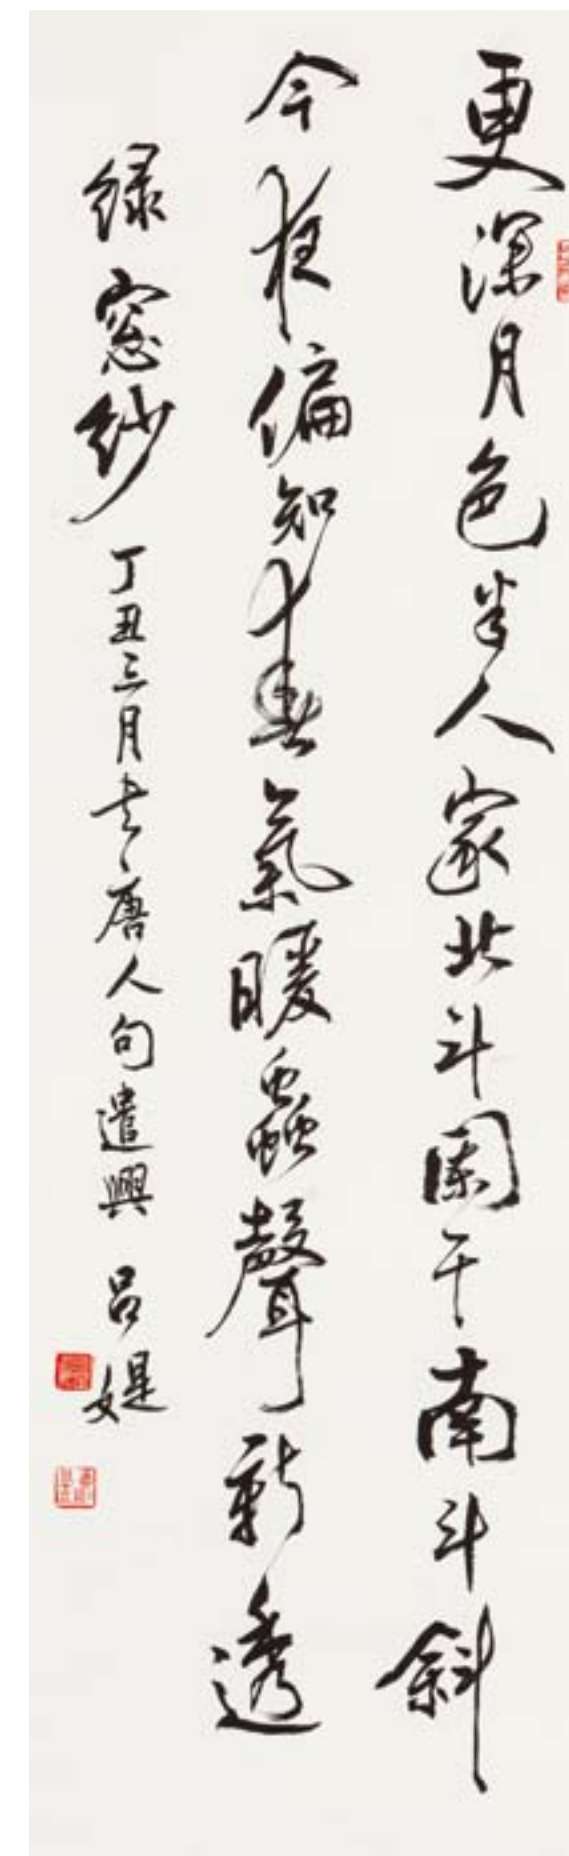 更深月色半人家北斗闌干南斗斜
今夜偏知春氣暖蟲聲新透
绿窓紗 丁丑三月书唐人句遣興 吕媞